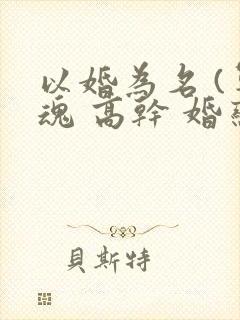 以婚為名 (
魂 高幹 婚
貝斯特